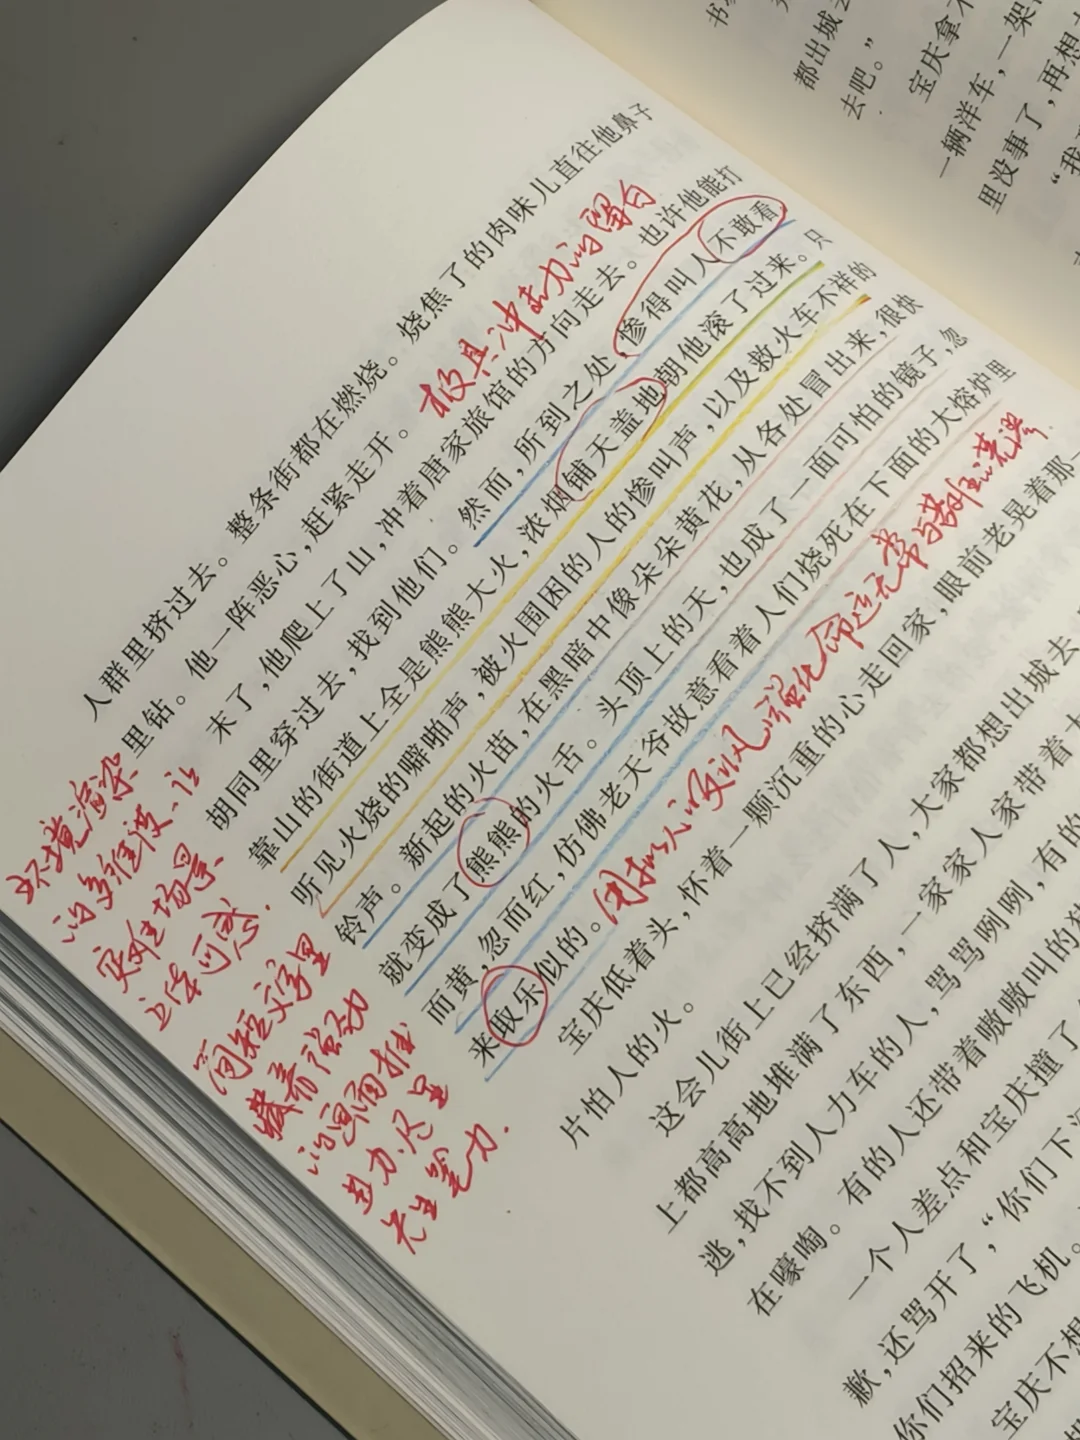 书
都出城去
去吧。”
宝庆拿不
一辆洋车，一架
里没事了，再想
“我
人群里挤过去。整条街都在燃烧。烧焦了的肉味儿直往他鼻子
里钻。他一阵恶心，赶紧走开。
极具冲击力的留白
末了，他爬上了山，冲着唐家旅馆的方向走去。也许他能打
胡同里穿过去，找到他们。然而，所到之处，惨得叫人不敢看
靠山的街道上全是熊熊大火，浓烟铺天盖地朝他滚了过来。只
听见火烧的噼啪声，被火围困的人的惨叫声，以及救火车不祥的
铃声。新起的火苗，在黑暗中像朵朵黄花，从各处冒出来，很快
就变成了熊熊的火舌。头顶上的天，也成了一面可怕的镜子，忽
而黄，忽而红，仿佛老天爷故意看着人们烧死在下面的大熔炉里
来取乐似的。
用拟人以及讽刺强化命运无常与荒谬
宝庆低着头，怀着一颗沉重的心走回家，眼前老晃着那一
片怕人的火。
这会儿街上已经挤满了人，大家都想出城去
上都高高地堆满了东西，一家家人家带着大
逃，找不到人力车的人，骂骂咧咧，有的
在嚎啕。有的人还带着嗷嗷叫的猪
一个人差点和宝庆撞了
歉，还骂开了，“你们下
你们招来的飞机。
宝庆不想
环境渲染
的多维度、让
灾难场景
立体可感.
简短文字里
藏着强劲
的画面推
进力.尽显
先生笔力.